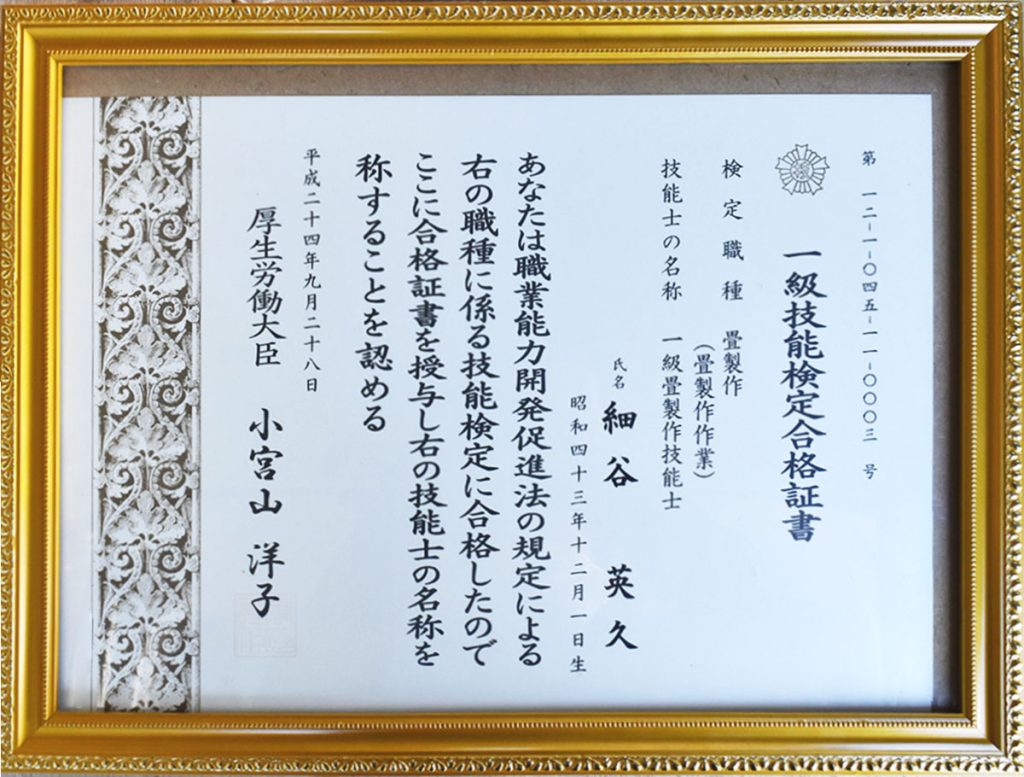 第 一二-一-〇四五-一一-〇〇〇三 号
一級技能検定合格証書
検定職種 畳製作
(畳製作作業)
技能士の名称 一級畳製作技能士
氏名 細谷 英久
昭和四十三年十二月一日生
あなたは職業能力開発促進法の規定による
右の職種に係る技能検定に合格したので
ここに合格証書を授与し右の技能士の名称を
称することを認める
平成二十四年九月二十八日
厚生労働大臣 小宮山 洋子